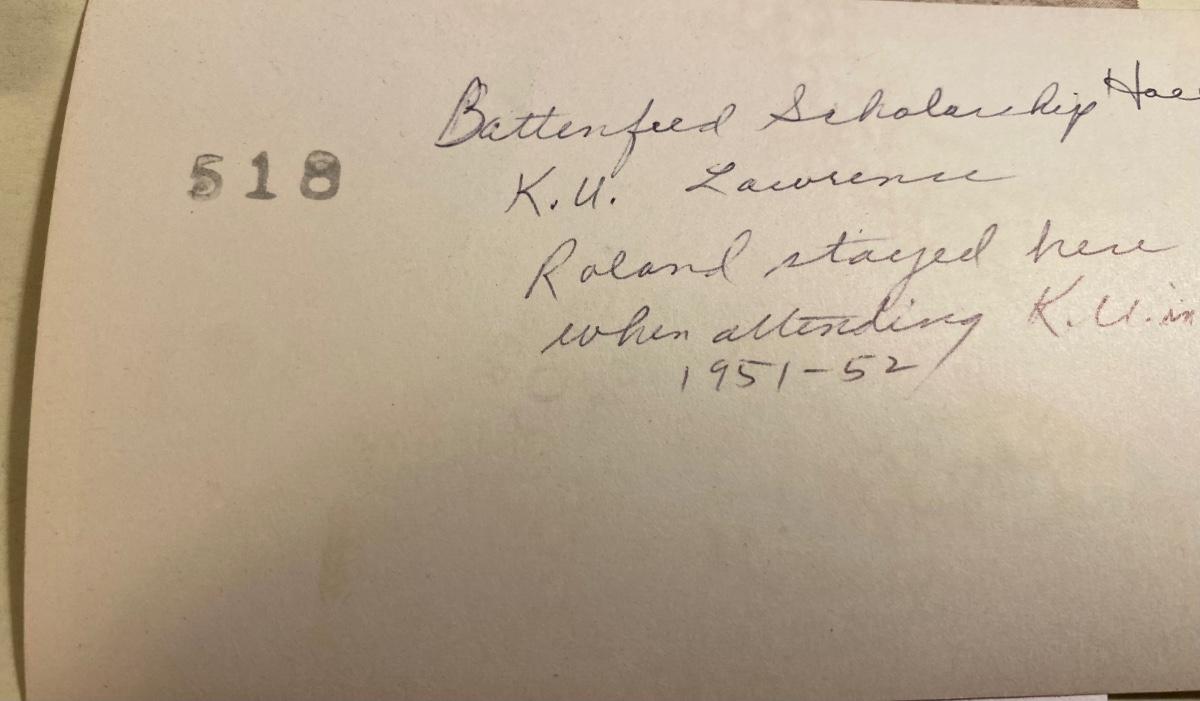 518
Battenfeed Scholarship Hall
K.U. Lawrence
Roland stayed here
when attending K.U. in
1951-52